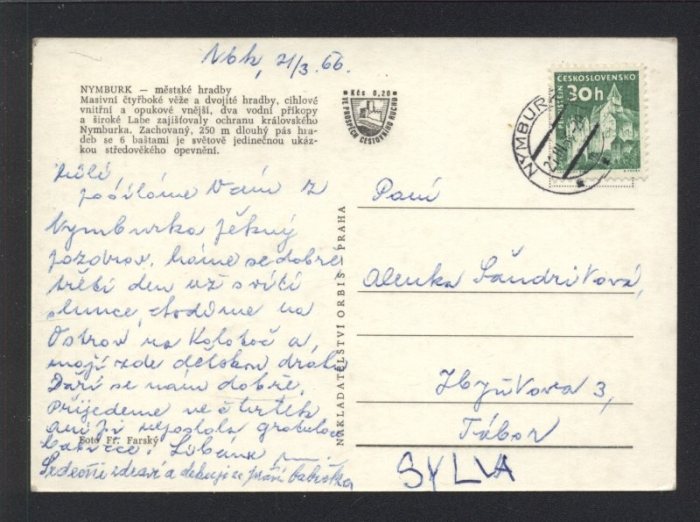 Nbk, 21/3. 66.
NYMBURK — městské hradby
Masivní čtyřboké věže a dvojité hradby, cihlové
vnitřní a opukové vnější, dva vodní příkopy
a široké Labe zajišťovaly ochranu královského
Nymburka. Zachovaný, 250 m dlouhý pás hra-
deb se 6 baštami je světově jedinečnou ukáz-
kou středověkého opevnění.
Kčs 0,20
VE PROSPĚCH CESTOVNÍHO RUCHU
ČESKOSLOVENSKO
30h
NYMBURK
Milí
posíláme Vám z
Nymburka pěkný
pozdrav. Máme se dobře
třetí den už svítí
slunce, chodíme na
Ostrov na Kolotoč a,
mají zde dětskou dráhu
Daří se nám dobře.
Přijedeme ve čtvrtek
babičce. Líbáme
Srdečně zdraví a děkuji za přání babička
Foto Fr. Farský
NAKLADATELSTVÍ ORBIS PRAHA
Paní
Alenka Šandriková,
3,
Tábor
SYLVA